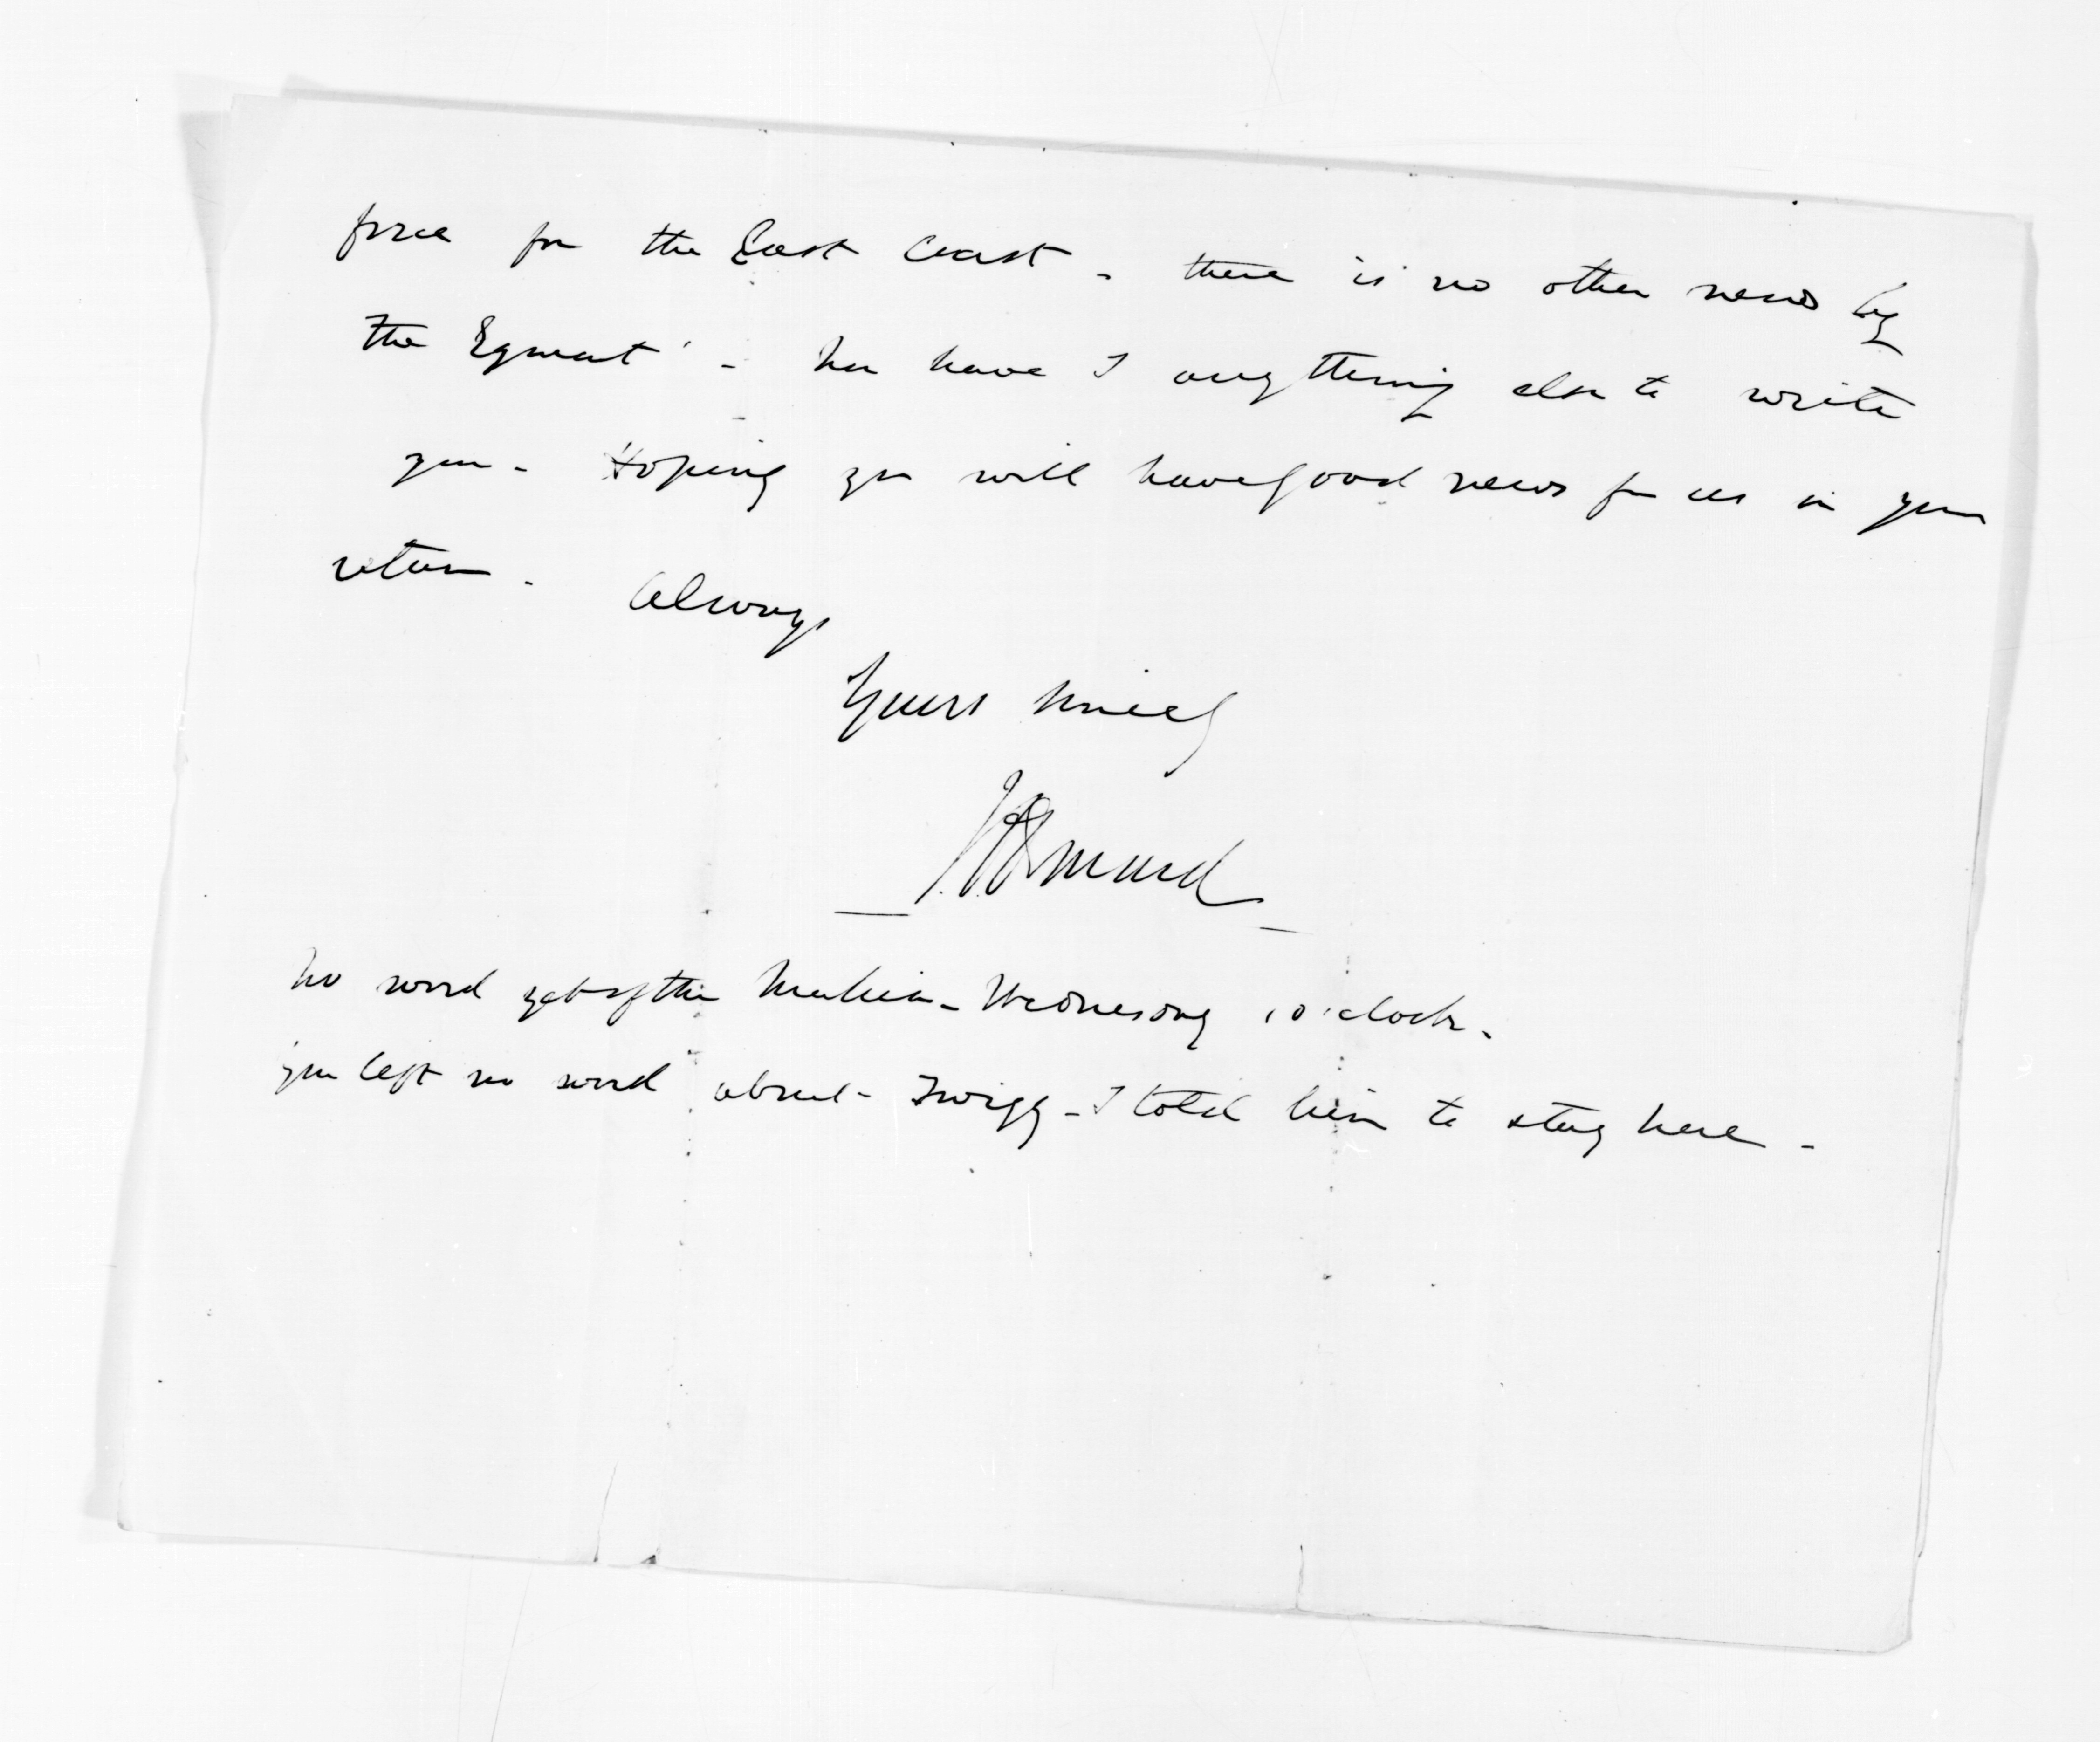 force for the East Coast - there is no other news by
the Egmont' - nor have I anything else to write
you - Hoping you will have good news for us in your
return - Always
Yours sincerely
J D Ormond
No word yet of the - Wednesday 10 o'clock -
you left no word about - Twigg - I told him to stay here -